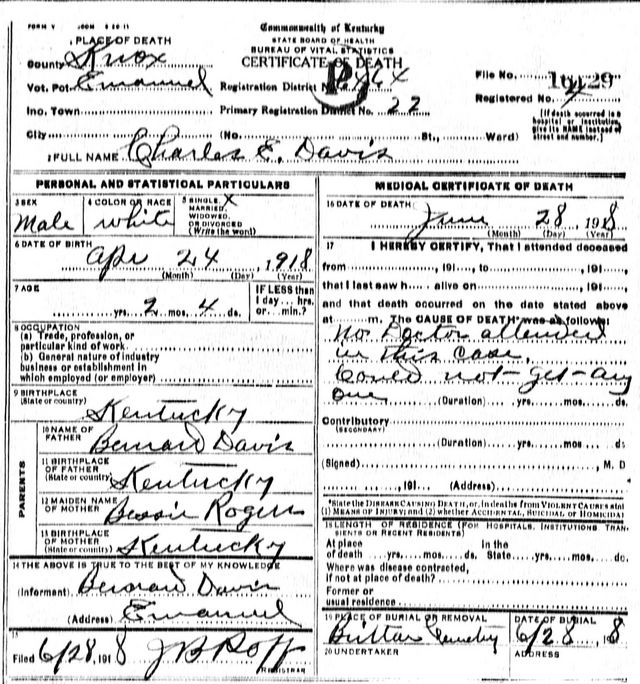 FORM V
Commonwealth of Kentucky
STATE BOARD OF HEALTH
BUREAU OF VITAL STATISTICS
CERTIFICATE OF DEATH
PLACE OF DEATH
County Knox
Vot. Pct. Emanuel
Inc. Town
City
Registration District No. 464
Primary Registration District No. 22
File No. 16129
Registered No. 4
[If death occurred in a hospital or institution, give its NAME instead of street and number.]
(No. St., Ward)
2 FULL NAME Charles E. Davis
PERSONAL AND STATISTICAL PARTICULARS
3 SEX
Male
4 COLOR OR RACE
white
5 SINGLE, X
MARRIED,
WIDOWED,
OR DIVORCED
(Write the word)
6 DATE OF BIRTH
Apr 24, 1918
(Month) (Day) (Year)
7 AGE
yrs. 2 mos. 4 ds.
IF LESS than
1 day... hrs.
or... min.?
8 OCCUPATION
(a) Trade, profession, or
particular kind of work
(b) General nature of industry
business or establishment in
which employed (or employer)
9 BIRTHPLACE
(State or country)
Kentucky
PARENTS
10 NAME OF
FATHER
Bernard Davis
11 BIRTHPLACE
OF FATHER
(State or country)
Kentucky
12 MAIDEN NAME
OF MOTHER
Bessie Rogers
13 BIRTHPLACE
OF MOTHER
(State or country)
Kentucky
14 THE ABOVE IS TRUE TO THE BEST OF MY KNOWLEDGE
(Informant) Bernard Davis
(Address) Emanuel
15
Filed 6/28, 1918 J B Roff
REGISTRAR
MEDICAL CERTIFICATE OF DEATH
16 DATE OF DEATH
June 28 1918
(Month) (Day) (Year)
17 I HEREBY CERTIFY, That I attended deceased
from, 191..., to, 191...,
that I last saw h... alive on, 191...,
and that death occurred on the date stated above
at m. The CAUSE OF DEATH* was as follows:
No Doctor attened
in this case.
Could not-get-any
one
(Duration) yrs. mos. ds.
Contributory
(SECONDARY)
(Duration) yrs. mos. ds.
(Signed), M. D
, 191... (Address)
*State the DISEASE CAUSING DEATH, or, in deaths from VIOLENT CAUSES stat
(1) MEANS OF INJURY and (2) whether ACCIDENTAL, SUICIDAL OR HOMICIDAL
18 LENGTH OF RESIDENCE (FOR HOSPITALS, INSTITUTIONS TRAN
SIENTS OR RECENT RESIDENTS)
At place
of death yrs. mos. ds.
In the
State yrs. mos. ds.
Where was disease contracted,
if not at place of death?
Former or
usual residence
19 PLACE OF BURIAL OR REMOVAL
Cemetry
DATE OF BURIAL
6/28 8
20 UNDERTAKER
ADDRESS